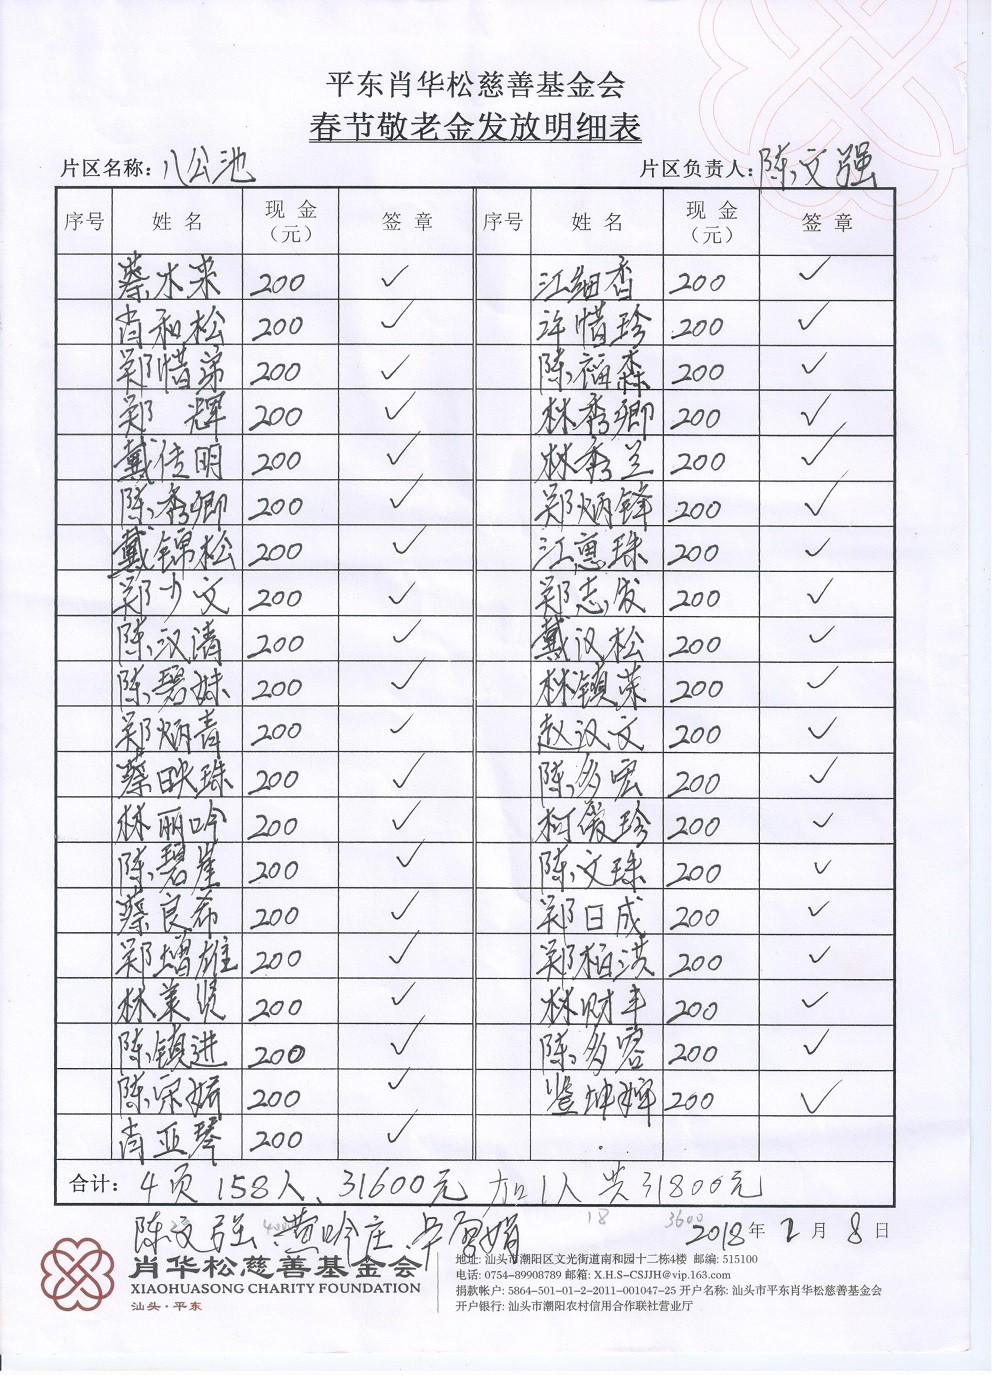 平东肖华松慈善基金会
春节敬老金发放明细表
片区名称：八公池 片区负责人：陈文强
序号 姓名 现金（元） 签章 序号 姓名 现金（元） 签章
蔡水来 200 ✓ 江细香 200 ✓
肖和松 200 ✓ 许惜珍 200 ✓
郑惜弟 200 ✓ 陈福森 200 ✓
郑辉 200 ✓ 林秀卿 200 ✓
戴佳明 200 ✓ 林秀兰 200 ✓
陈秀卿 200 ✓ 郑炳锋 200 ✓
戴锦松 200 ✓ 江惠珠 200 ✓
郑少文 200 ✓ 郑志发 200 ✓
陈汉清 200 ✓ 戴汉松 200 ✓
陈碧妹 200 ✓ 林镇荣 200 ✓
郑炳青 200 ✓ 赵汉文 200 ✓
蔡映珠 200 ✓ 陈多宏 200 ✓
林丽吟 200 ✓ 柯爱珍 200 ✓
陈碧 200 ✓ 陈文珠 200 ✓
蔡良希 200 ✓ 郑日成 200 ✓
郑增雄 200 ✓ 郑植洪 200 ✓
林美贤 200 ✓ 林财丰 200 ✓
陈镇进 200 ✓ 陈多容 200 ✓
陈 200 ✓ 坤辉 200 ✓
肖亚琴 200 ✓
合计：4页158人、31600元 加1人共31800元
18 3600
陈文强、黄吟庄、 2018年2月8日
肖华松慈善基金会
XIAOHUASONG CHARITY FOUNDATION
汕头·平东
地址：汕头市潮阳区文光街道南和园十二栋4楼 邮编：515100
电话：0754-89908789 邮箱：X.H.S-CSJJH@vip.163.com
捐款帐户：5864-501-01-2-2011-001047-25 开户名称：汕头市平东肖华松慈善基金会
开户银行：汕头市潮阳农村信用合作联社营业厅